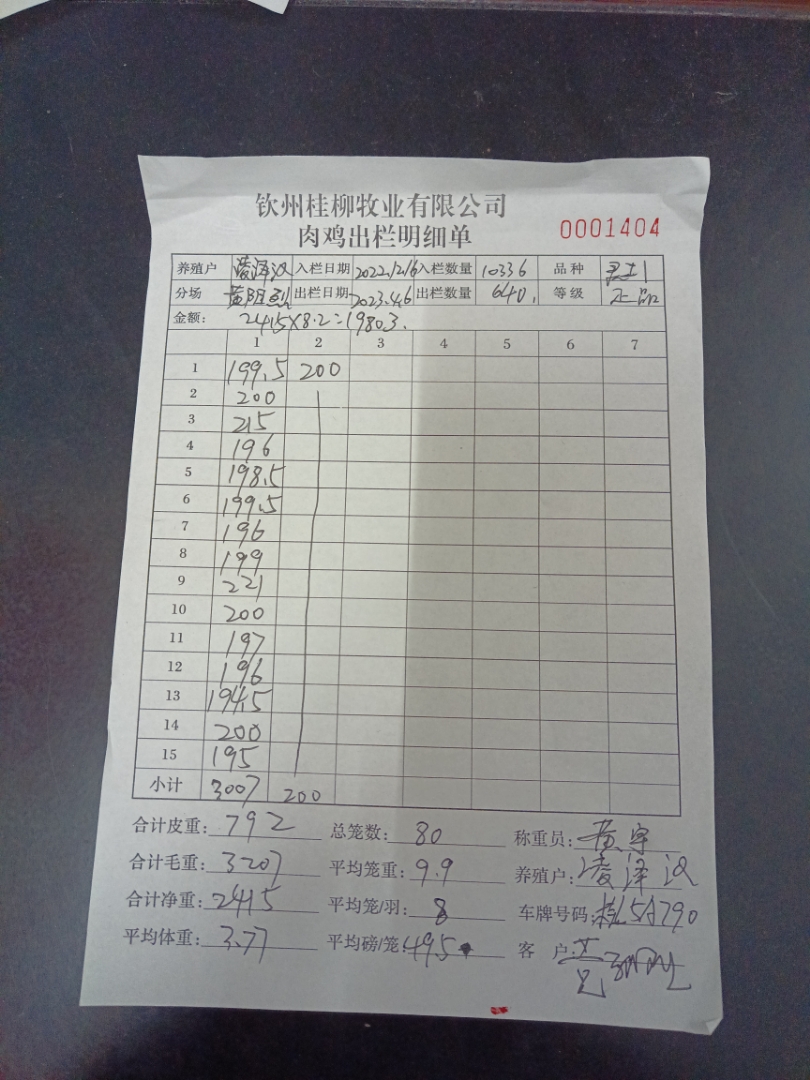 钦州桂柳牧业有限公司
肉鸡出栏明细单
0001404
养殖户 凌泽汉 入栏日期 2022.12.16 入栏数量 10336 品种
分场 出栏日期 2023.4.6 出栏数量 640. 等级 正品
金额: 2415×8.2=19803.
1 2 3 4 5 6 7
1 199.5 200
2 200
3 215
4 196
5 198.5
6 199.5
7 196
8 199
9 221
10 200
11 197
12 196
13 194.5
14 200
15 195
小计 3007 200
合计皮重: 792 总笼数: 80 称重员: 黄宇
合计毛重: 3207 平均笼重: 9.9 养殖户: 凌泽汉
合计净重: 2415 平均笼/羽: 8 车牌号码: 桂L5A790
平均体重: 3.77 平均磅/笼: 495 客户: